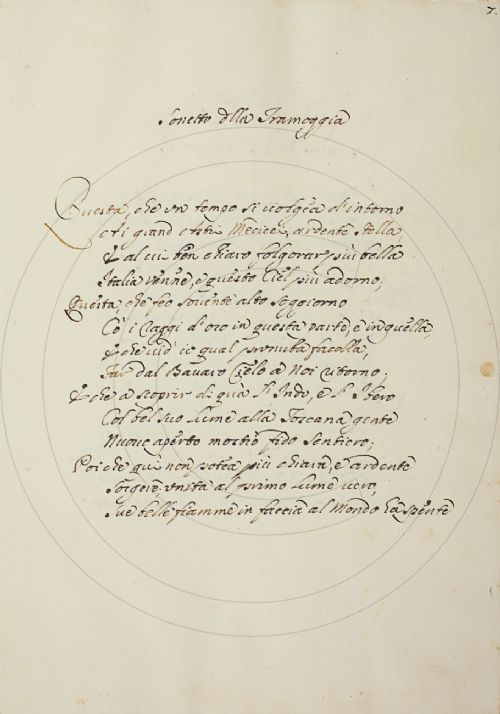 7.
Sonetto della Tramoggia
Questa, che un tempo si volgea d'intorno
ardente Stella
al cui ben chiaro folgorar più bella
Italia venne, e questo Ciel più adorno;
Questa, che feo sovente alto soggiorno
Co' i raggi d'oro in questa parte, e in quella,
qual pronuba facella,
Far dal Bavaro Cielo a Noi ritorno;
E che a scoprir di quà l'Indo, e l'Ibero
Col bel suo lume alla Toscana gente
Nuovo aperto mostrò fido sentiero;
Poi che quì non potea più chiara, e ardente
Sorgere, unita al primo lume vero,
Sue belle fiamme in faccia al Mondo hà spente